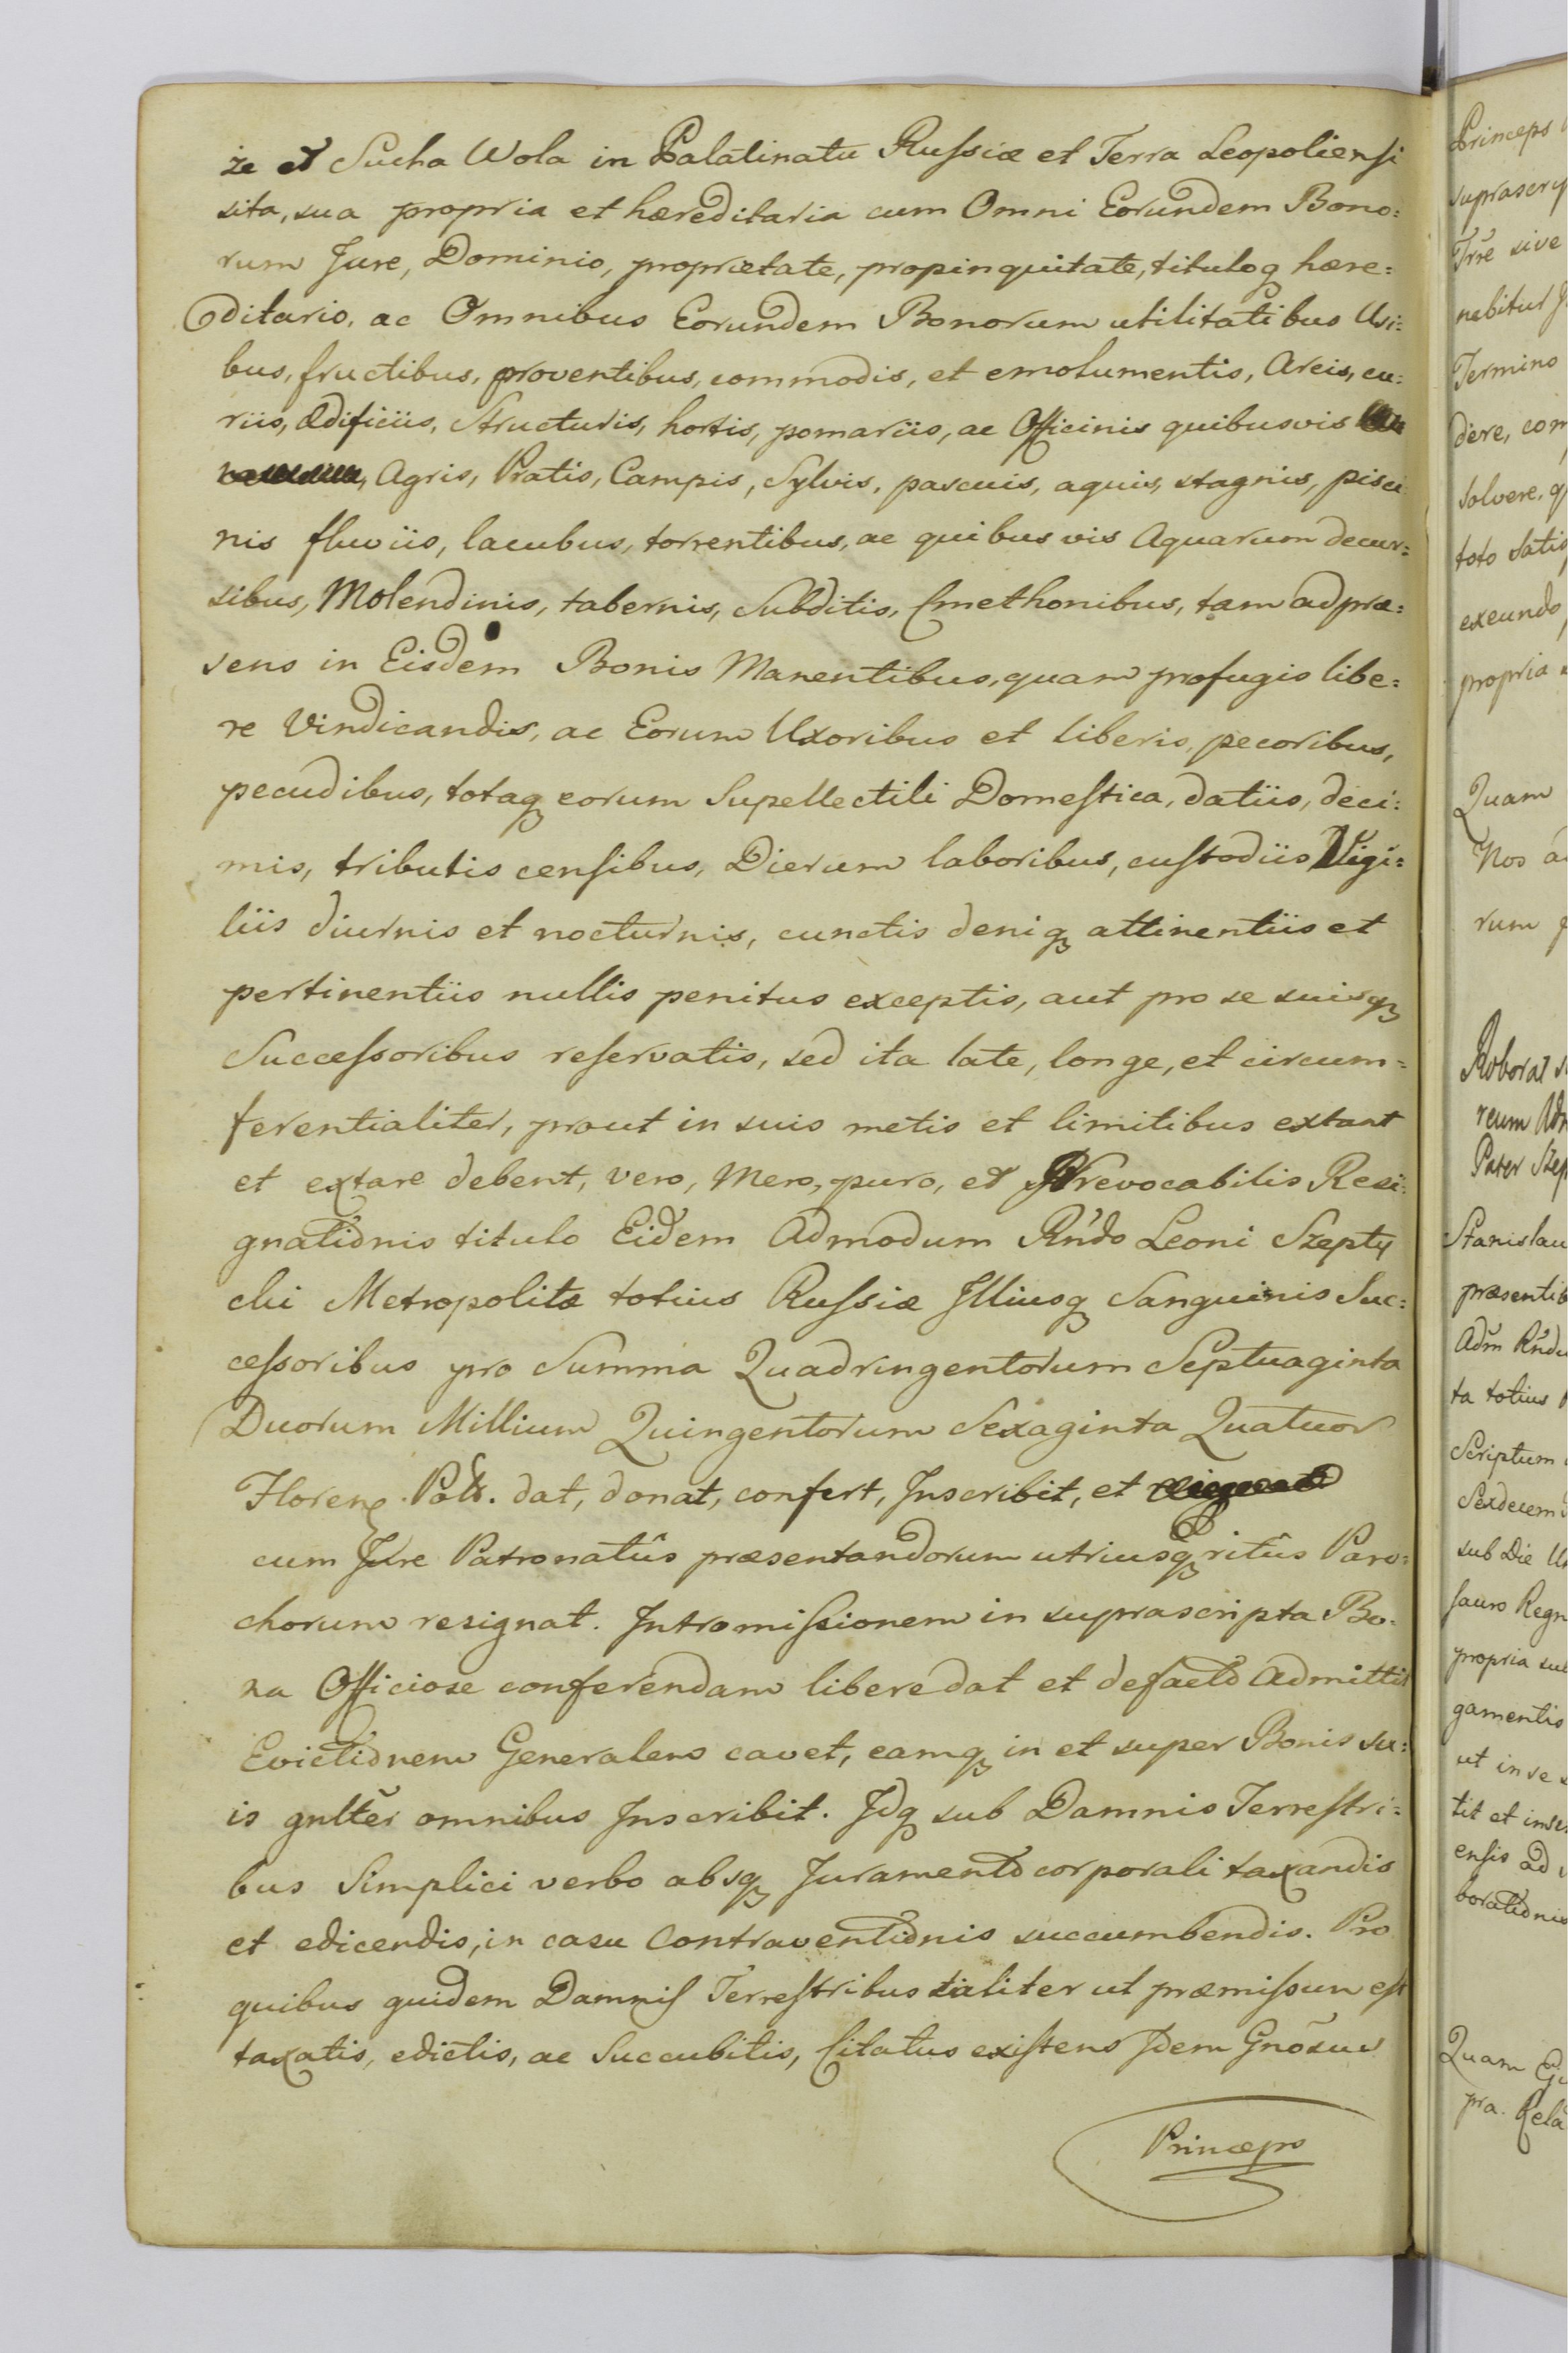 że et Sucha Wola in Palatinatu Russiæ et Terra Leopoliensi
sita, sua propria et hæreditaria cum Omni Eorundem Bono:
rum Jure, Dominio, proprietate, propinquitate, tituloq hære:
ditario, ac Omnibus Eorundem Bonorum utilitatibus Usi:
bus, fructibus, proventibus, commodis, et emolumentis, Areis, cu:
riis, Ædificiis, Structuris, hortis, pomariis, ac Officinis quibusvis
Agris, Pratis, Campis, Sylvis, pascuis, aquis, stagnis, pisci
nis fluviis, lacubus, torrentibus, ac quibusvis Aquarum decur:
sibus, Molendinis, tabernis, Subditis, Cmethonibus, tam ad præ:
sens in Eisdem Bonis Manentibus, quam profugis libe:
re Vindicandis, ac Eorum Uxoribus et liberis, pecoribus,
pecudibus, totaq eorum Supellectili Domestica, datiis, deci:
mis, tributis censibus, Dierum laboribus, custodiis Vigi:
liis diurnis et nocturnis, cunctis deniq attinentiis et
pertinentiis nullis penitus exceptis, aut pro se suisq
Successoribus reservatis, sed ita late, longe, et circum=
ferentialiter, prout in suis metis et limitibus extant
et extare debent, vero, Mero, puro, et Irrevocabilis Resi:
gnationis titulo Eidem Admodum Rńdo Leoni Szepty
cki Metropolitæ totius Russiæ Illiusq Sanguinis Suc:
cessoribus pro Summa Quadringentorum Septuaginta
Duorum Millium Quingentorum Sexaginta Quatuor
Floren. Pol. dat, donat, confert, Inscribit, et
cum Jure Patronatûs præsentandorum utriusq ritûs Paro:
chorum resignat. Intromissionem in suprascripta Bo:
na Officiose conferendam libere dat et defacto Admittit
Evictionem Generalem cavet, eamq in et super Bonis su:
is gnlter omnibus Inscribit. Idq sub Damnis Terrestri:
bus Simplici verbo absq Juramento corporali taxandis
et edicendis, in casu Contraventionis succumbendis. Pro
quibus quidem Damnis Terrestribus taliter ut præmissum est
taxatis, edictis, ac Succubitis, Citatus existens Idem Gnõsus
Princeps
Princeps
suprascrip
Trre sive
nebitur
Termino
dere, com
solvere, q
toto satis
exeundo,
propria
Quam
Nos
rum
Roborat
reum Adm
Pater Szep
Stanislau
præsentib
Adm Rńdu
ta totius
Scriptum
Sexdecem
sub Die
sauro Regn
propria su
gamentis
ut in se
tit et inse
ensis ad
borationis
Quam
pra. Rela